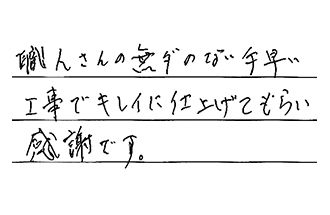 職人さんの無ダのない手早い
工事でキレイに仕上げてもらい
感謝です。